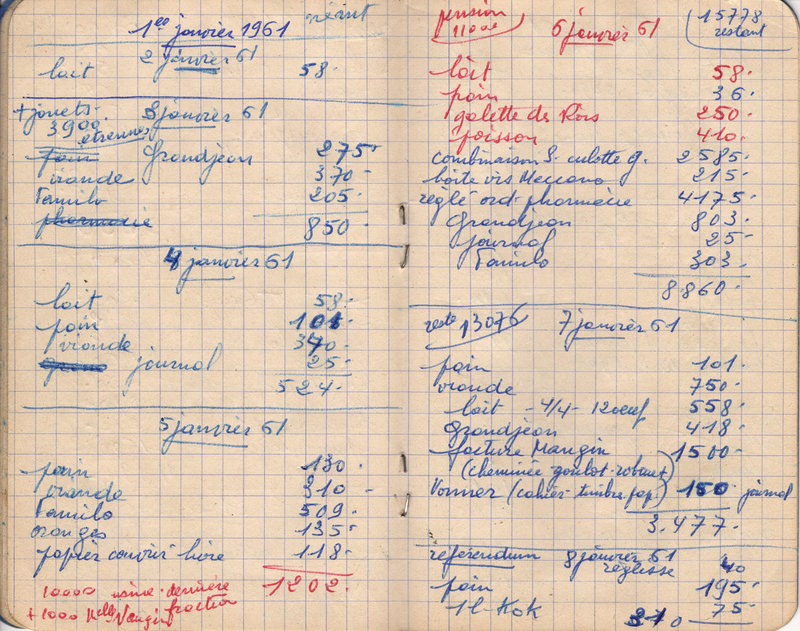 1er janvier 1961
2 janvier 61
lait 58.
+ jouets 3 janvier 61
3900.
étrennes
pain Grandjean 275
viande 370
Familo 205.
pharmacie 850.
4 janvier 61
lait 58.
pain 101.
viande 370.
journal 25.
524.
5 janvier 61
pain 130.
viande 310
Familo 509.
oranges 135
papier couvrir livre 118.
1202.
10000 dernière
fraction
+ 1000
pension
11000
6 janvier 61
15778
restant
lait 58.
pain 36.
galette des Rois 250.
poisson 410.
combinaison S. culotte g. 2585.
boîte vis Meccano 215.
réglé ord. pharmacie 4175.
Grandjean 803.
journal 25
Familo 303.
8.860.
reste 13076 7 janvier 61
pain 101.
viande 750.
lait - 4/4 - 12 oeuf 558
Grandjean 418.
facture Mangin 1500.
(cheminée goulot robinet)
Vonner (cahier-timbre.pap.) 150 journal
3.477.
référendum 8 janvier 61
réglisse 40
pain 195.
1 l. Kok 75.
310